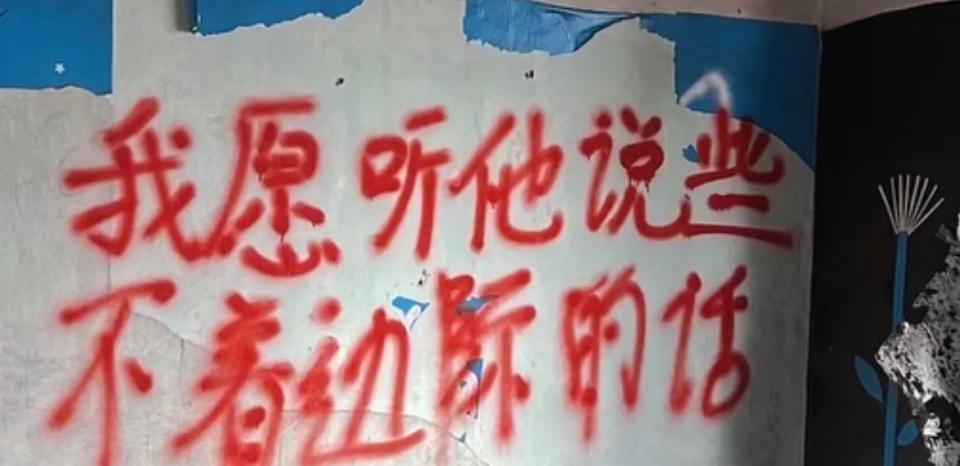 我愿听他说些
不着边际的话